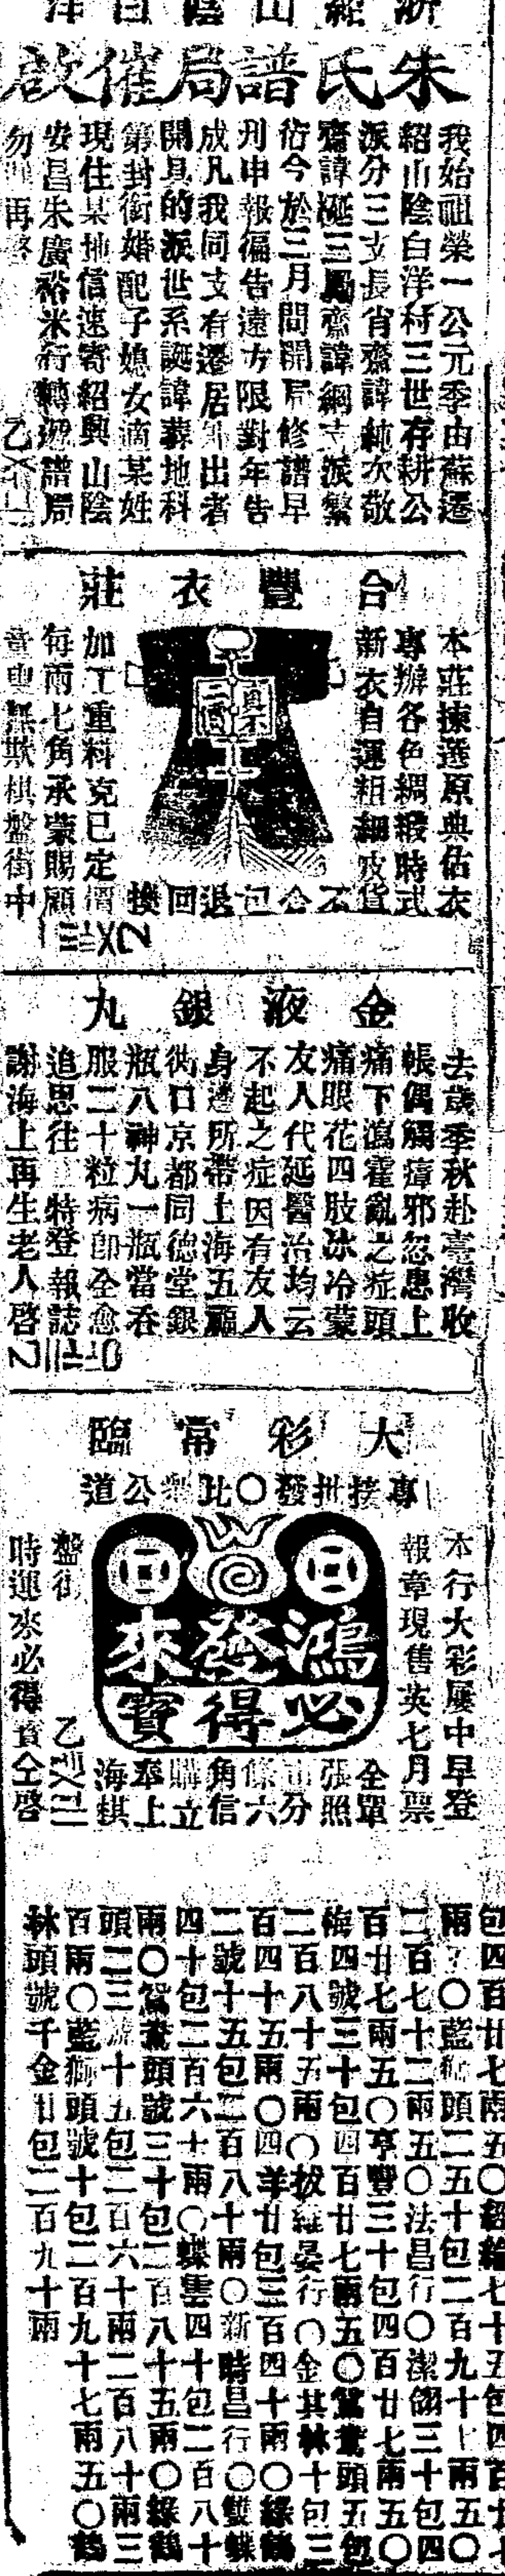 浙紹山陰白洋
朱氏譜局催啟
我始祖榮一公元季由蘇遷
紹山陰白洋村三世存耕公
派分三支長肖齋諱純次敬
齋諱綖三勗齋諱綱支派繁
衍今於三月間開局修譜早
刋申報徧告遠方限對年告
成凡我同支有遷居外出者
開具的派世系誕諱葬地科
第封銜婚配子媳女適某姓
現住某地信速寄紹興山陰
安昌朱廣裕米行轉遞譜局
勿再啓
合豐衣莊
本莊揀選原典估衣
專辦各色綢緞時式
新衣自運粗細皮貨
真不二價
不合包退回換
加工重料克己定價
每兩七角承蒙賜顧
童叟無欺棋盤街中
金液銀丸
去歲季秋赴臺灣收
帳偶觸瘴邪忽患上
痛下瀉霍亂之症頭
痛眼花四肢冰冷蒙
友人代延醫治均云
不起之症因有友人
身邊所帶上海五福
衖口京都同德堂銀
瓶八神丸一瓶當吞
服二十粒病卽全愈
追思往特登報誌
謝海上再生老人啓
大彩常臨
專接批發〇比衆公道
本行大彩屢中早登
報章現售英七月票
鴻發來
必得寶
全單
張照
分
條六
角信
購立
奉上
海棋
盤街
時運來必得寶仝啓
包四百廿七兩五〇經綸七十五包四百廿七
兩〇藍獅頭二五十包二百九十七兩五〇
二百七十二兩五〇法昌行〇潔卿三十包四
百廿七兩五〇亨豐三十包四百廿七兩五〇
梅四號三十包四百廿七兩五〇鴛鴦頭五包
二百八十五兩〇拔維晏行〇金其林十包三
百四十五兩〇四羊廿包三百四十兩〇綠鶴
二號十五包二百八十兩〇新時昌行〇雙蝶
四十包二百六十兩〇蝶雲四十包二百八十
兩〇鴛鴦頭號三十包二百八十五兩〇綠鶴
頭二三號十五包二百六十兩二百八十兩三
百兩〇藍獅頭號十包二百九十七兩五〇鶴
林頭號千金廿包二百九十兩